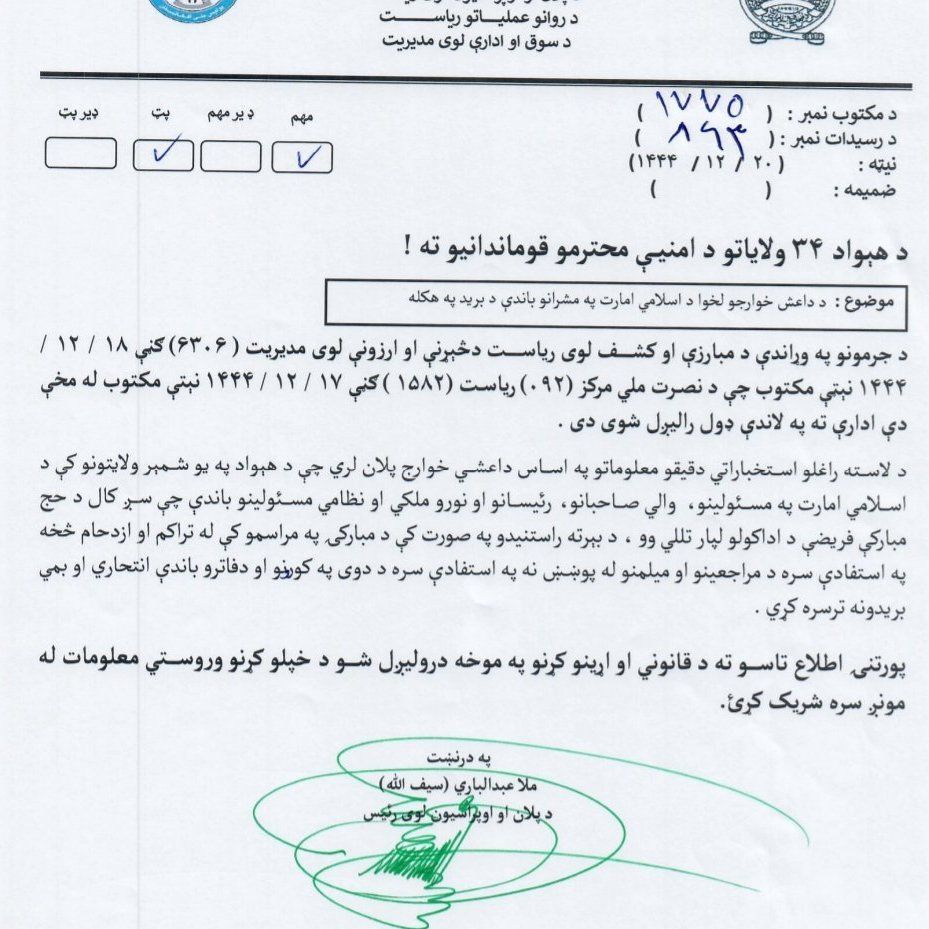 د روانو عملیاتو ریاست
د سوق او ادارې لوی مدیریت
د مکتوب نمبر : ( ۱۷۷۵ )
د رسیداتو نمبر : ( ۸۹۳ )
نیټه : ( ۲۰ / ۱۲ / ۱۴۴۴)
ضمیمه : ( )
مهم ډیر مهم پټ ډیر پټ
د هېواد ۳۴ ولایاتو د امنیې محترمو قوماندانیو ته !
موضوع : د داعش خوارجو لخوا د اسلامي امارت په مشرانو باندې د برید په هکله
د جرمونو په وړاندې د مبارزې او کشف لوی ریاست دڅېړنې او ارزونې لوی مدیریت ( ۶۳۰۶) ګڼې ۱۸ / ۱۲ /
۱۴۴۴ نېټې مکتوب چې د نصرت ملي مرکز (۰۹۲) ریاست (۱۵۸۲ ) ګڼې ۱۷ / ۱۲ / ۱۴۴۴ نېټې مکتوب له مخې
دې ادارې ته په لاندې ډول رالیږل شوی دی .
د لاسته راغلو استخباراتي دقیقو معلوماتو په اساس داعشي خوارج پلان لري چې د هېواد په یو شمېر ولایتونو کې د
اسلامي امارت په مسئولینو، والي صاحبانو، رئیسانو او نورو ملکي او نظامي مسئولینو باندې چې سږ کال د حج
مبارکې فریضې د اداکولو لپار تللي وو ، د بېرته راستنیدو په صورت کې د مبارکۍ په مراسمو کې له تراکم او ازدحام څخه
په استفادې سره د مراجعینو او میلمنو له پوښښ نه په استفادې سره د دوی په کورنو او دفاترو باندې انتحاري او بمي
بریدونه ترسره کړي .
پورتنۍ اطلاع تاسو ته د قانوني او اړینو کړنو په موخه درولیږل شو د خپلو کړنو وروستي معلومات له
مونږ سره شریک کړئ.
په درنښت
ملا عبدالباري (سیف الله)
د پلان او اوپراسیون لوی رئیس